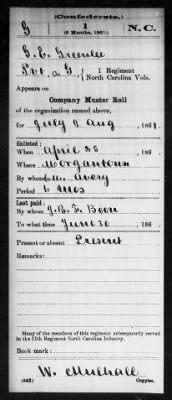 (Confederate.)
G 1 N.C.
(6 Months, 1861.)
G. E. Greenlee
Pvt. Co. G, 1 Regiment
North Carolina Vols.
Appears on
Company Muster Roll
of the organization named above,
for July & Aug, 1861.
Enlisted:
When April 25, 186
Where Morganton
By whom Avery
Period 6 Mos
Last paid:
By whom J. B. F. Boon
To what time June 30, 186
Present or absent Present
Remarks:
Many of the members of this regiment subsequently served
in the 11th Regiment North Carolina Infantry.
Book mark:
W. Mulhall
(642) Copyist.